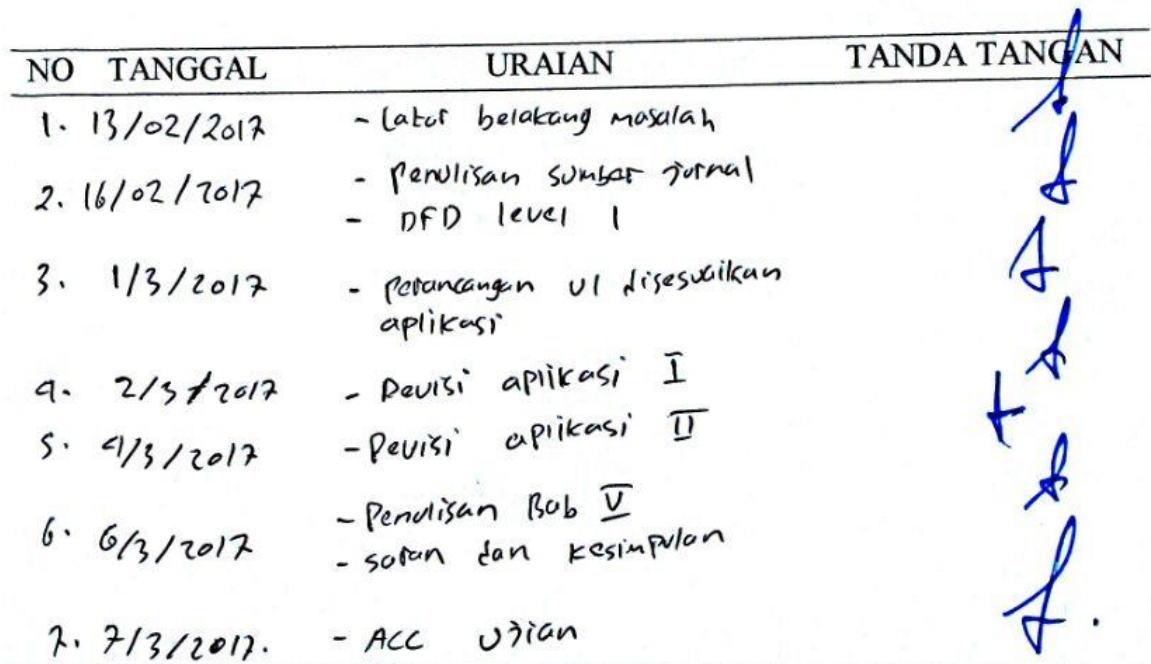 NO TANGGAL URAIAN TANDA TANGAN
1. 13/02/2017 - Latar belakang masalah
2. 16/02/2017 - Penulisan sumber jurnal
- DFD level 1
3. 1/3/2017 - perancangan UI disesuaikan
aplikasi
4. 2/3/2017 - Revisi aplikasi I
5. 4/3/2017 - Revisi aplikasi II
6. 6/3/2017 - Penulisan Bab V
- saran dan kesimpulan
7. 7/3/2017. - ACC ujian